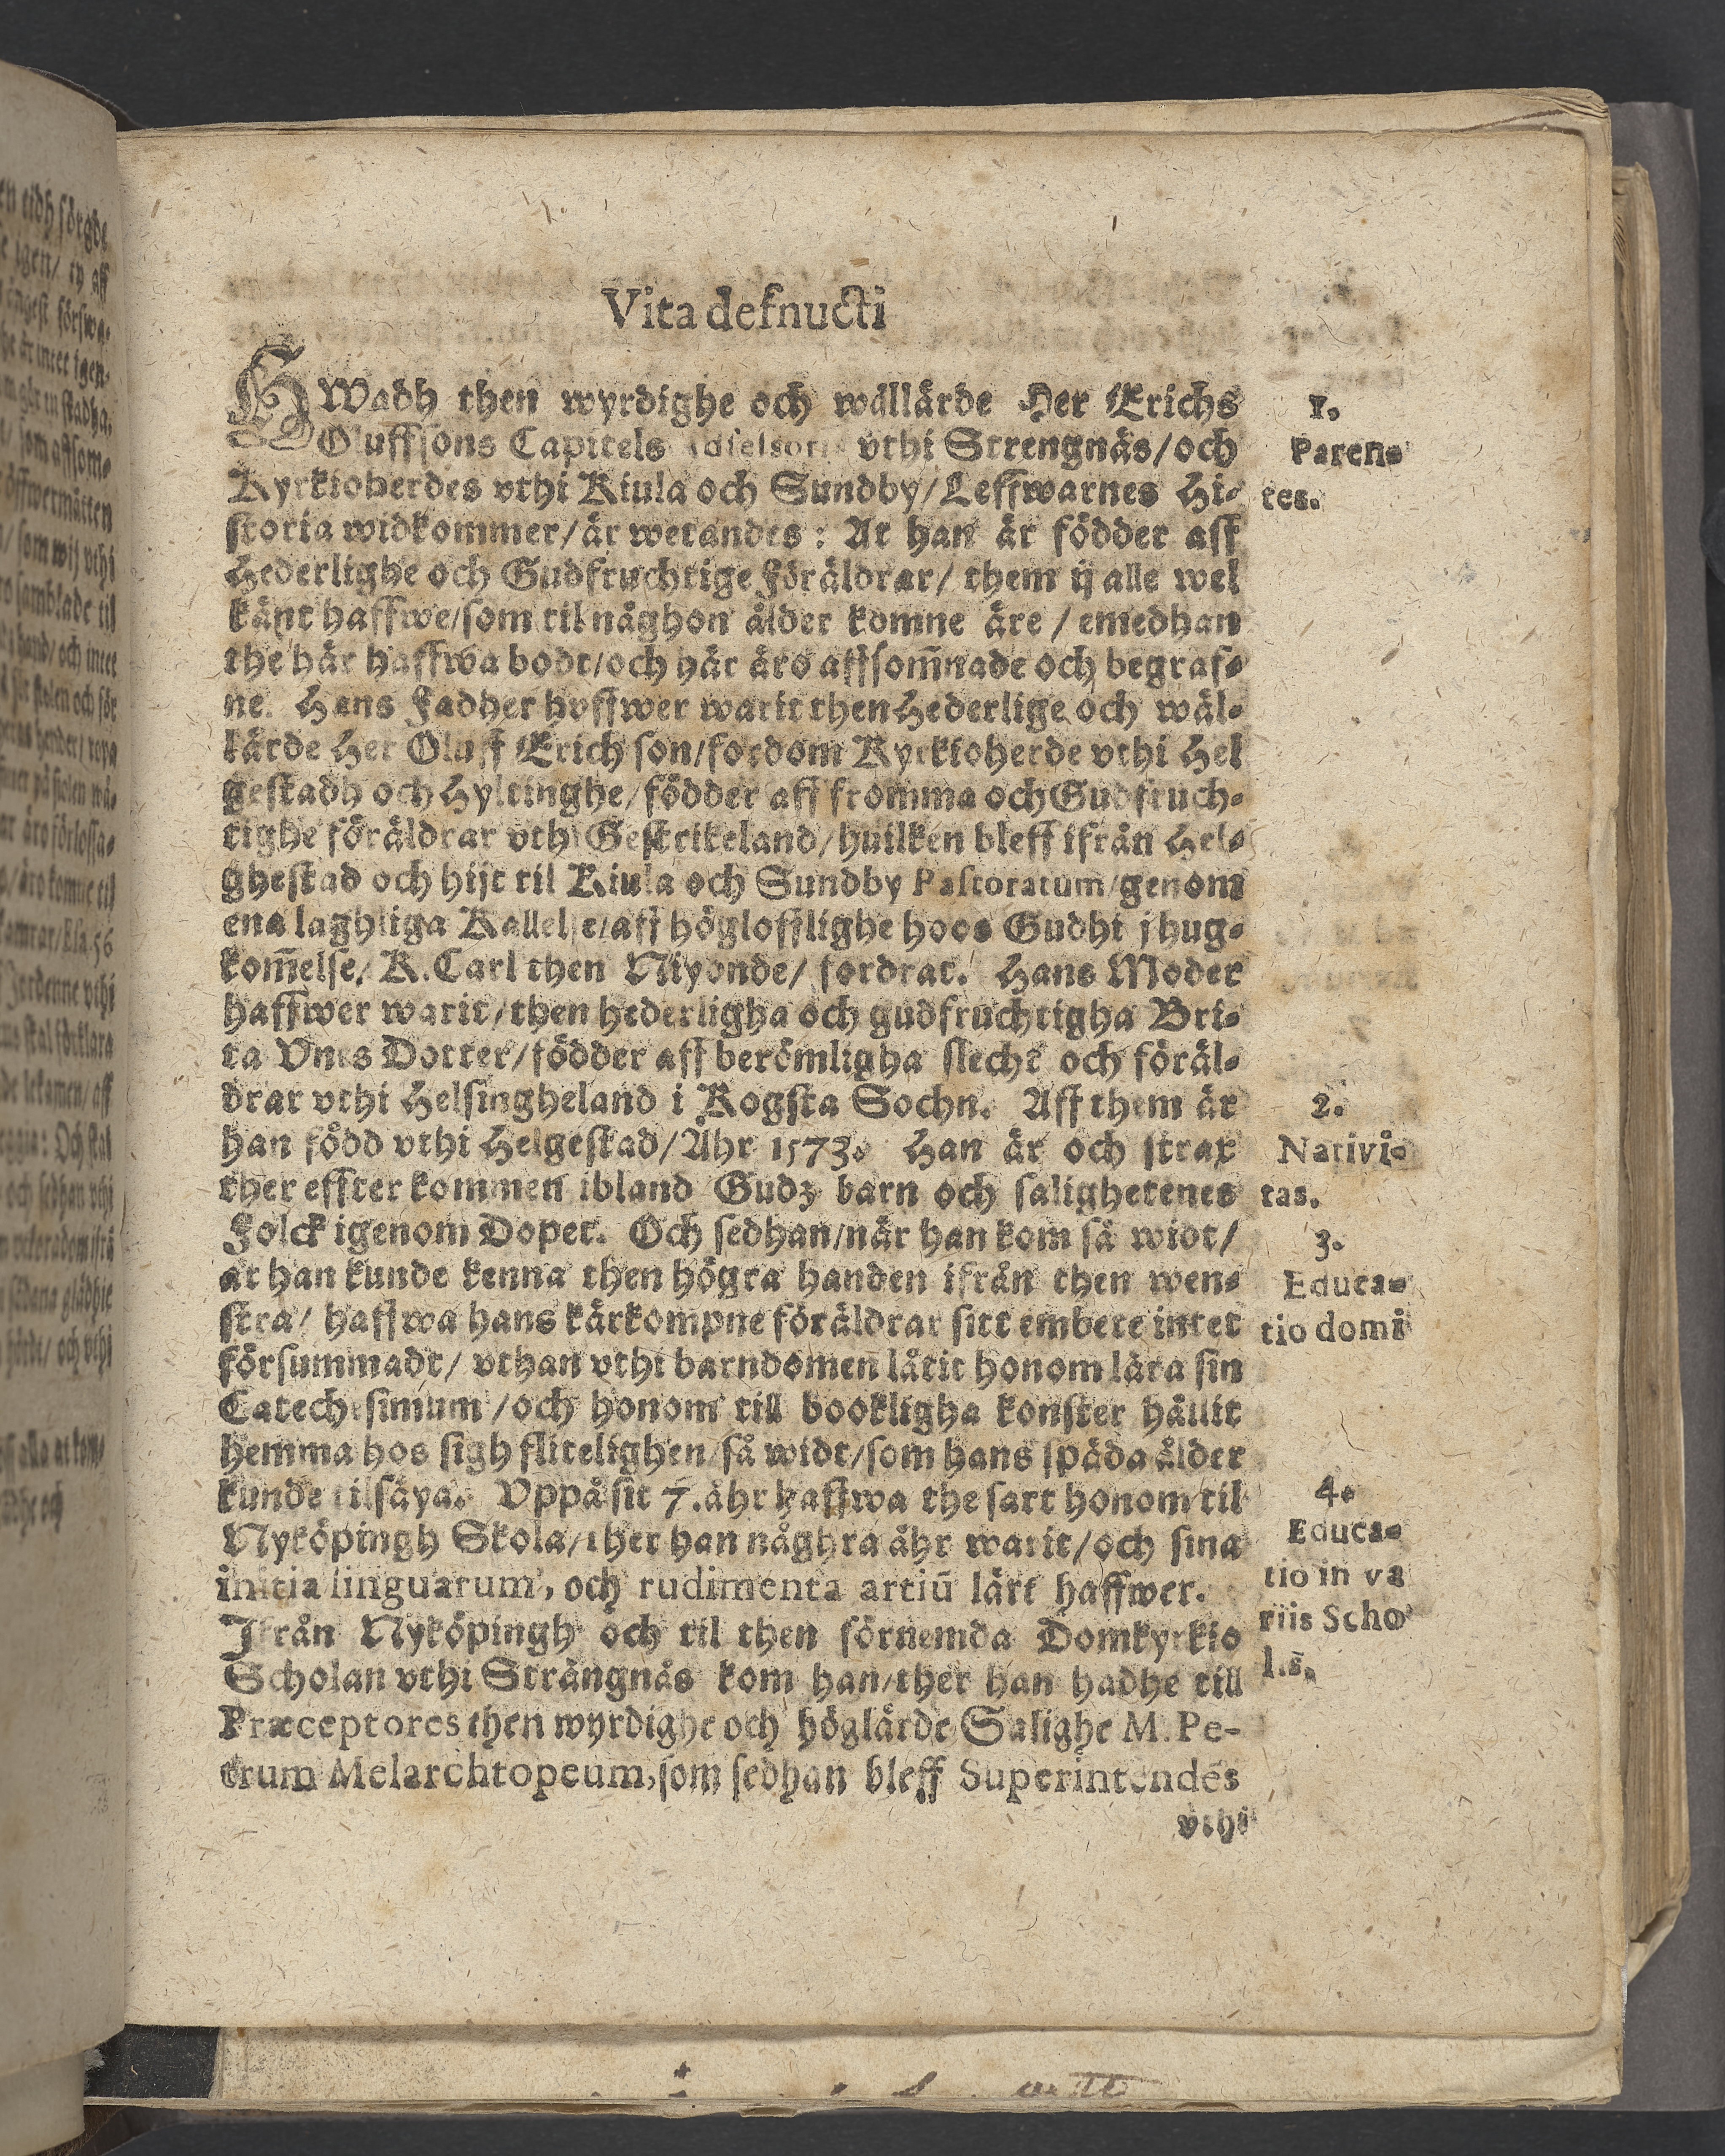 Vita defnucti
HWadh then wyrdighe och wällärde Her Erichs
Oluffsons Capitels Adsessoris vthi Strengnäs/och
Kyrkioherdes vthi Kiula och Sundby/Leffwarnes Hi-
storia widkommer/är wetandes: At han är födder aff
Hederlighe och Gudfruchtige Föräldrar/ them ij alle wel
känt haffwe/som til någhon ålder komne äre / emedhan
the här haffwa bodt/och här äro aff som̃nade och begraf-
ne. Hans Fadher hoffwer warit then Hederlige och wäl-
lärde Her Oluff Erich son/fordom Kyrkioherde vthi Hel
gestadh och Hyltinghe/födder aff fromma och Gudfruch-
tighe föräldrar vthi Gestrikeland/huilken bleff ifrån Hel-
ghestad och hijt til Kiula och Sundby Pastoratum/genom
ena laghliga Kallelse/aff höglofflighe hoos Gudhi jhug-
kom̃else/ K.Carl then Niyonde/ fordrat. Hans Moder
haffwer warit/then hederligha och gudfruchtigha Bri-
ta Vnes Dotter/födder aff berömligha slecht och föräl-
drar vthi Helsingheland i Rogsta Sochn. Aff them är
han född vthi Helgestad/Åhr 1573. Han är och strax
ther effter kommen ibland Gudz barn och salighetenes
Folck igenom Dopet. Och sedhan/när han kom så widt/
at han kunde kenna then högra handen ifrån then wen-
stra/ haffwa hans kärkompne föräldrar sitt embete intet
försummadt/ vthan vthi barndomen låtit honom lära sin
Catechisimum /och honom till bookligha konster hållit
hemma hos sigh flitelighen/så widt/som hans späda ålder
kunde tilsäya. Vppå sit 7.åhr haffwa the satt honom til
Nyköpingh Skola/ther han någhra åhr warit/och sina
initia linguarum, och rudimenta artiū lärt haffwer.
Ifrån Nyköpingh och til then förnemda Domkyrkio
Scholan vthi Strängnäs kom han/ther han hadhe till
Præceptores then wyrdighe och höglärde Salighe M. Pe-
trum Melarchtopeum,som sedhan bleff Superintendēs
vthi
1.
Paren-
tes.
2.
Nativi-
tas.
3.
Educa-
tio domi
4.
Educa-
tio in va
riis Scho
lis.